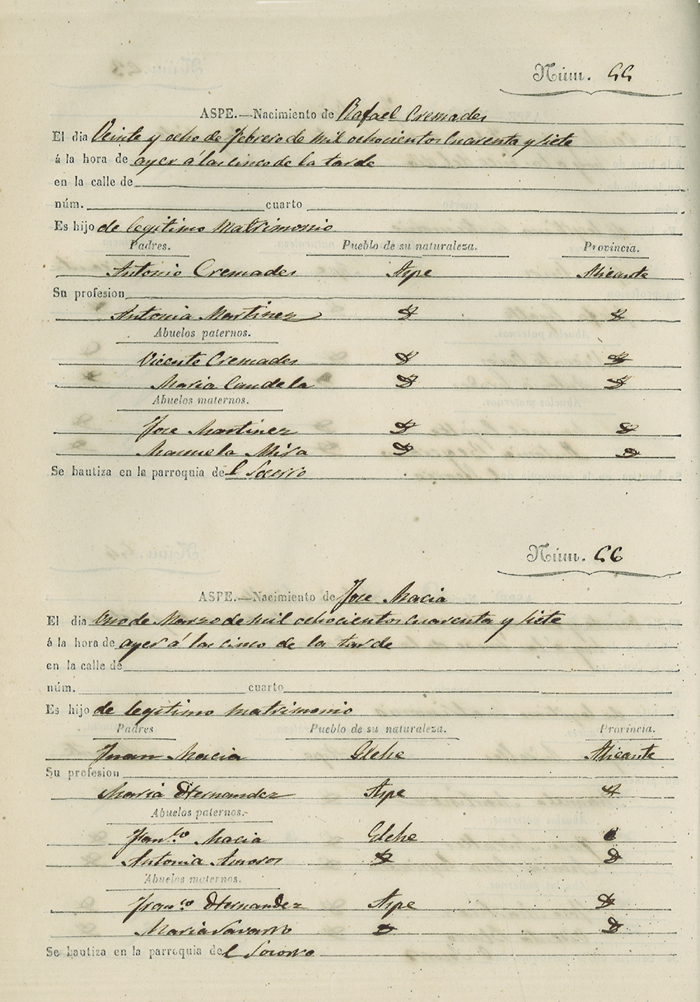 Núm. 55
ASPE.—Nacimiento de Rafael Cremades
El dia Veinte y ocho de febrero de mil ochocientos cuarenta y siete
á la hora de ayer á las cinco de la tarde
en la calle de
núm. cuarto
Es hijo de legitimo matrimonio
Padres. Pueblo de su naturaleza. Provincia.
Antonio Cremades Aspe Alicante
Su profesion
Antonia Martinez
Abuelos paternos.
Vicente Cremades
Maria Candela
Abuelos maternos.
Jose Martinez
Manuela Mira
Se bautiza en la parroquia del Socorro
Núm. 56
ASPE.—Nacimiento de Jose Macia
El dia uno de Marzo de mil ochocientos cuarenta y siete
á la hora de ayer á las cinco de la tarde
en la calle de
núm. cuarto
Es hijo de legitimo matrimonio
Padres Pueblo de su naturaleza. Provincia.
Juan Macia Elche Alicante
Su profesion
Maria Hernandez Aspe
Abuelos paternos.
Franco. Macia Elche
Antonia Amoros
Abuelos maternos.
Franco. Hernandez Aspe
Maria Navarro
Se bautiza en la parroquia del Socorro